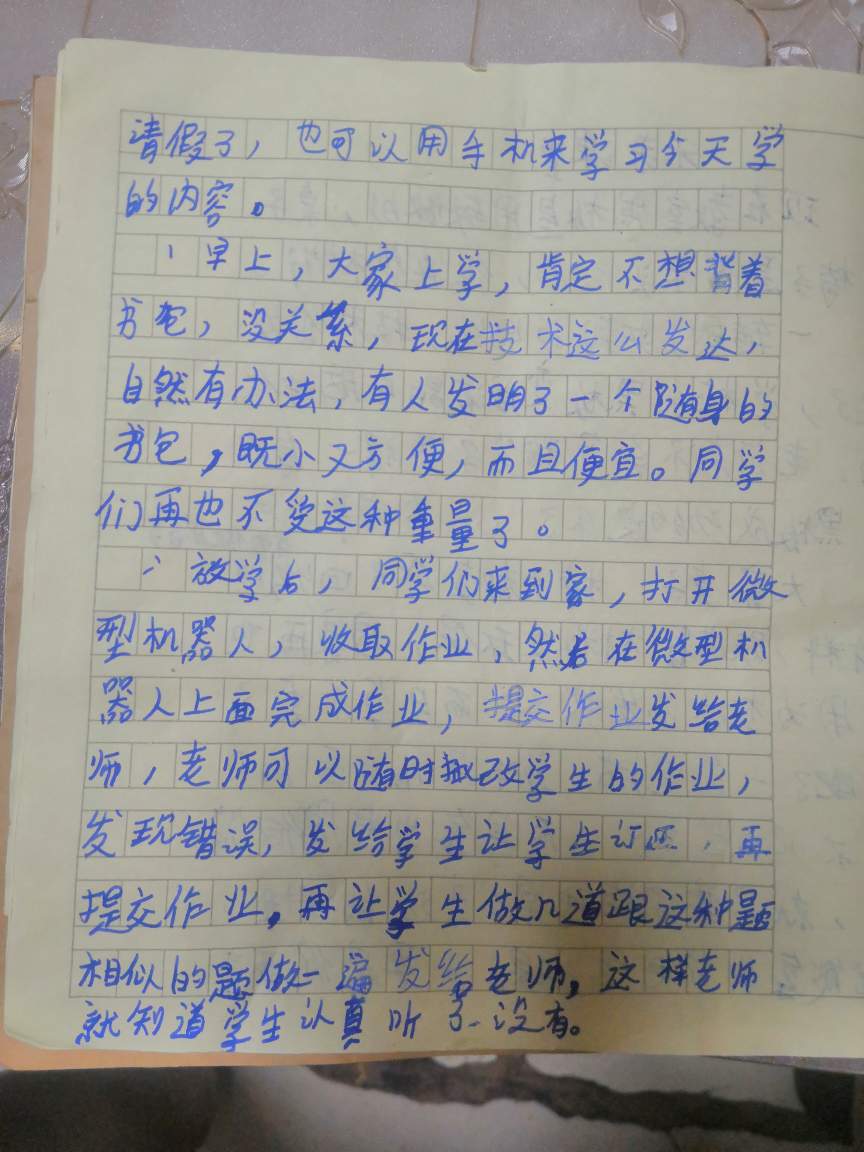 请假了，也可以用手机来学习今天学
的内容。
早上，大家上学，肯定不想背着
书包，没关系，现在技术这么发达，
自然有办法，有人发明了一个随身的
书包，既小又方便，而且便宜。同学
们再也不受这种重量了。
放学后，同学们来到家，打开微
型机器人，收取作业，然后在微型机
器人上面完成作业，提交作业发给老
师，老师可以随时批改学生的作业，
发现错误，发给学生让学生订正，再
提交作业，再让学生做几道跟这种题
相似的题做一遍发给老师，这样老师
就知道学生认真听了没有。